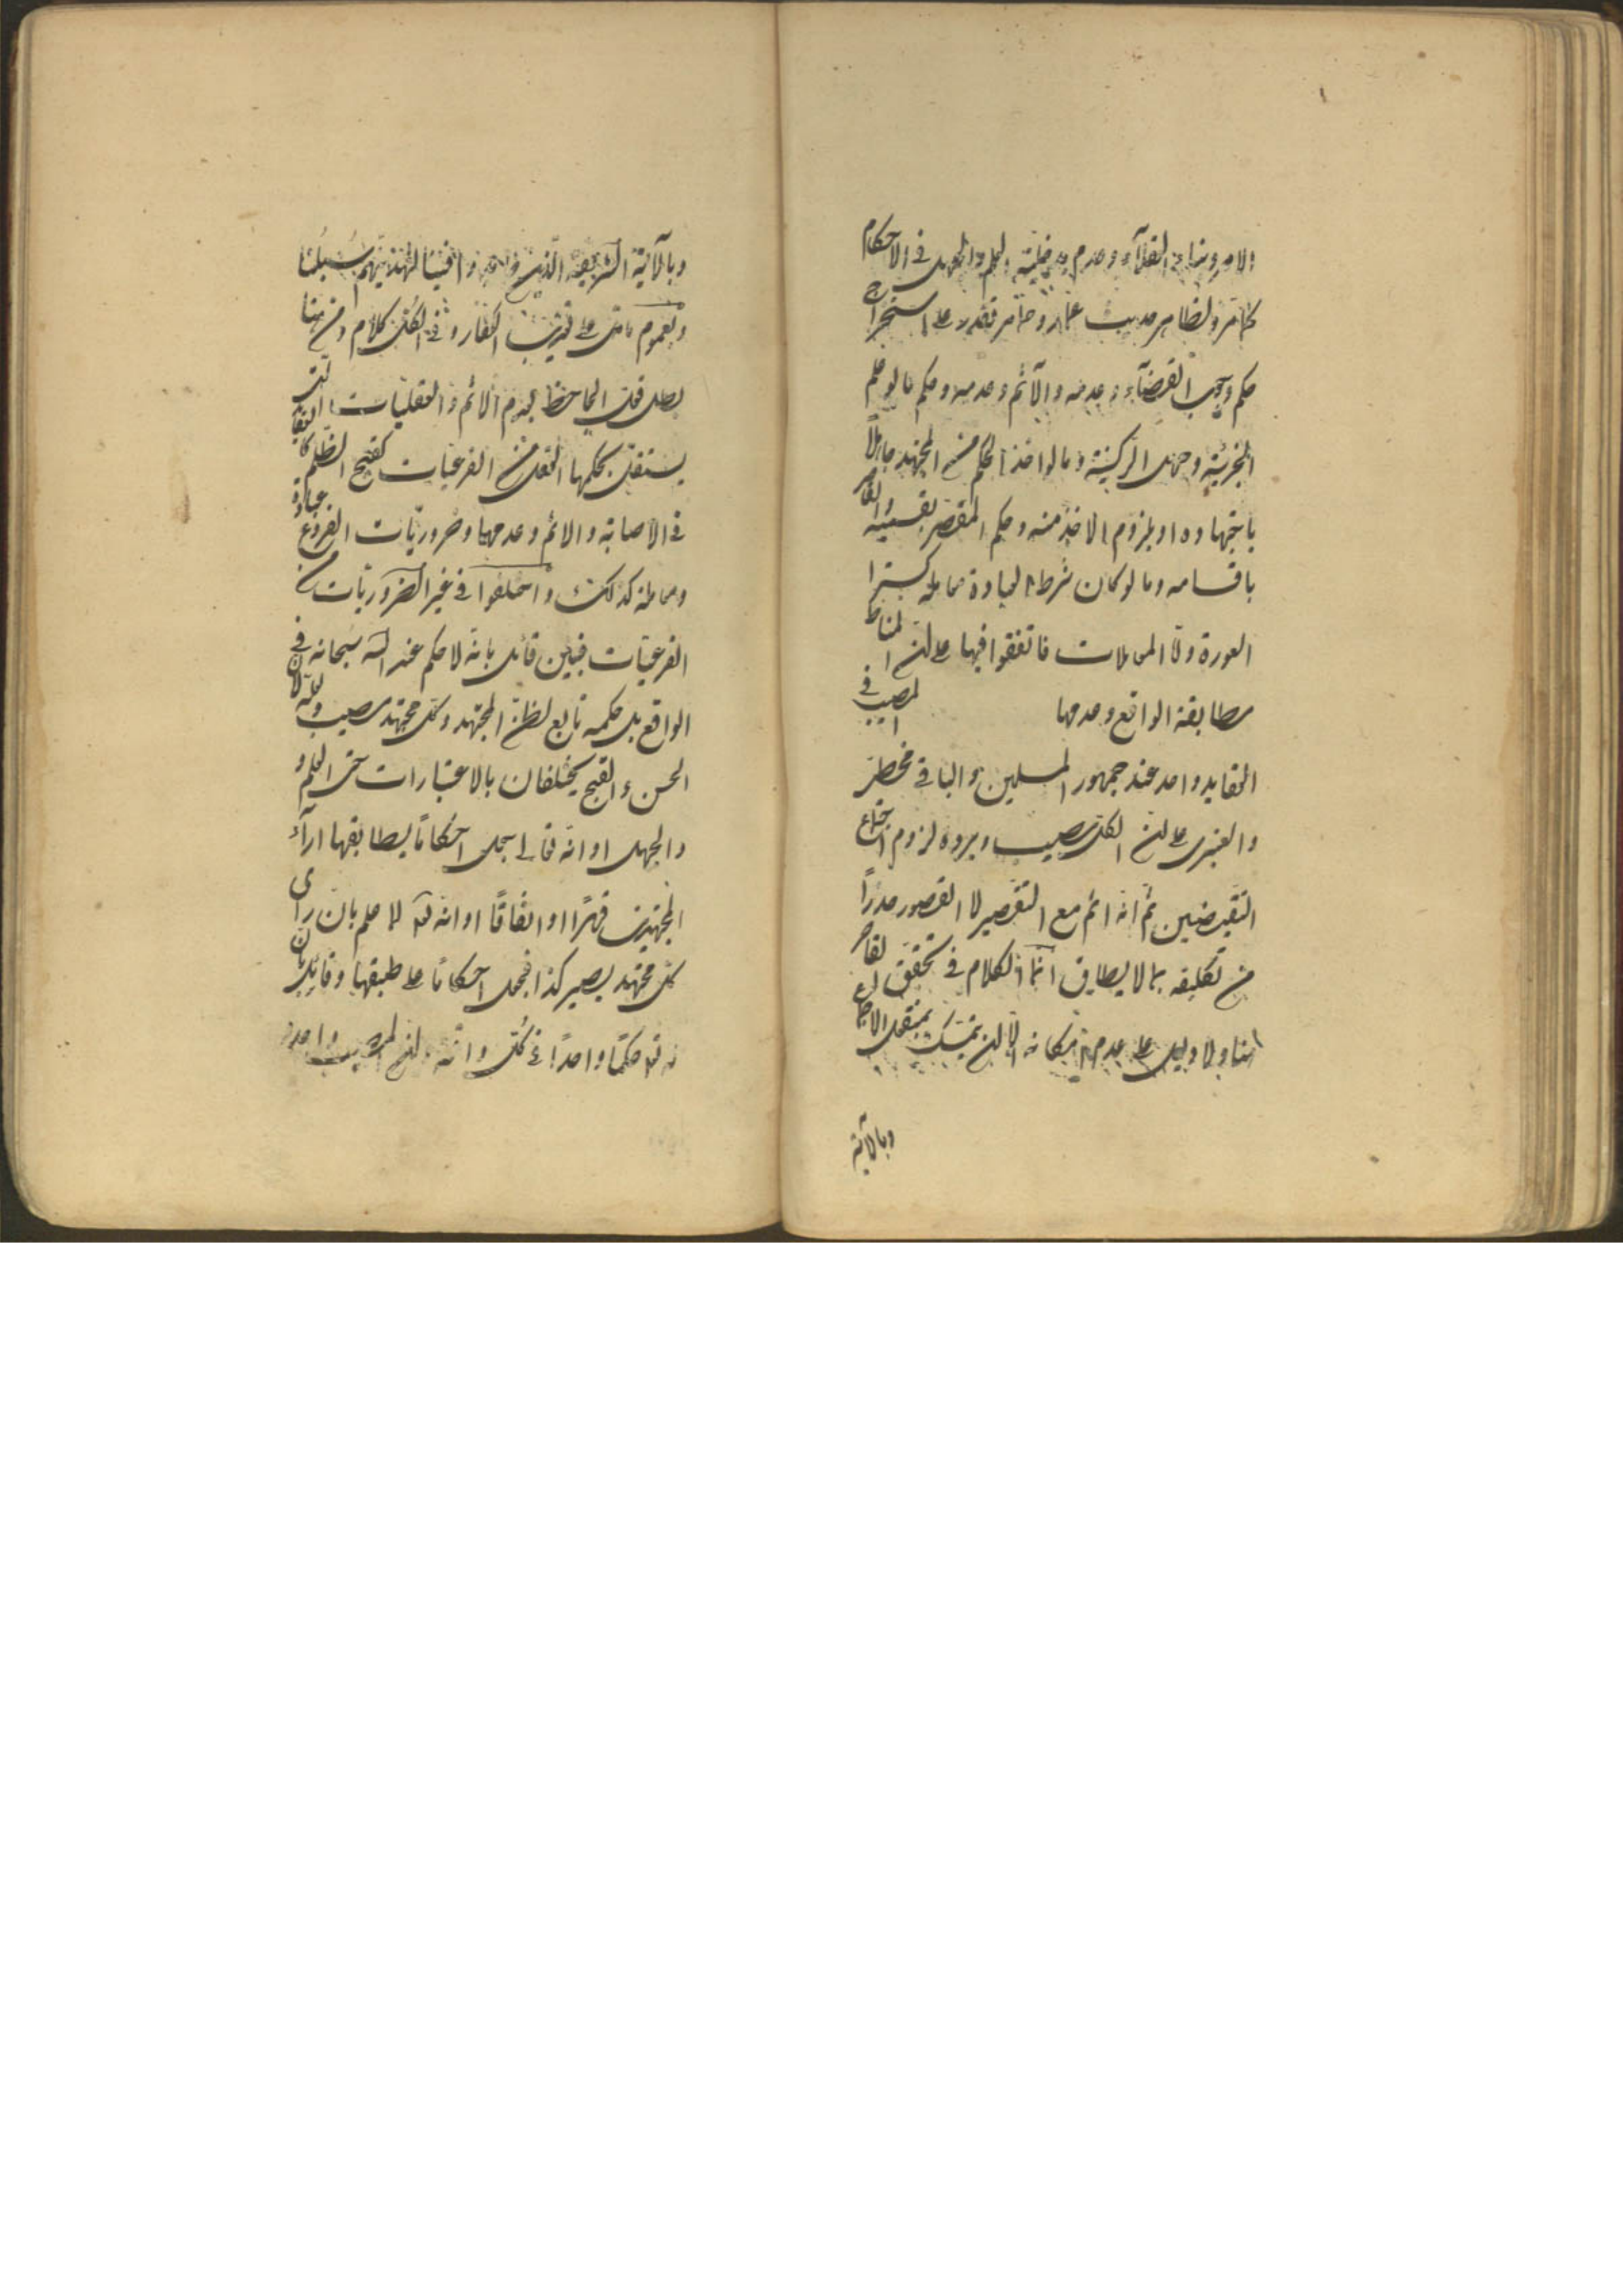 الامر وبناء العقلاء وعدم مدخلية العلم والجهل في الاحكام
كما مر ولظاهر حديث عمار وما مر فقدر على استخراج
حكم وجوب القضاء وعدمه والاثم وعدمه وحكم ما لو علم
الجزئية وجهل الركنية وما لو اخذ الحكم من المجتهد جاهلا
باجتهاده او بلزوم الاخذ منه وحكم المقصر بقسميه والقاصر
باقسامه وما لو كان شرط العبادة معاملة كستر
العورة واما المعاملات فاتفقوا فيها على ان المناط
مطابقة الواقع وعدمها المصيب في
العقايد واحد عند جمهور المسلمين والباقي مخطئ
والعنبري على ان الكل مصيب ويرده لزوم اجتماع
النقيضين ثم انه اثم مع التقصير لا القصور حذرا
من تكليفه بما لا يطاق انما الكلام في تحقق القاصر
هنا ولا دليل على عدم امكانه الا ان يتمسك بمنقول الاجماع
وبالآية
وبالآية الشريفة الذين جاهدوا فينا لنهدينهم سبلنا
وبعموم ما دل على تعذيب الكفار وفي الكل كلام ومن هنا
بطل قول الجاحظ بعدم الاثم والعقليات التي
يستقل بحكمها العقل من الفرعيات كقبح الظلم كالعقايد
في الاصابة والاثم وعدمهما وضروريات الفروع عبادة
ومعاملة كذلك واختلفوا في غير الضروريات من
الفرعيات فبين قائل بانه لا حكم عند الله سبحانه في
الواقع بل حكمه تابع لظن المجتهد وكل مجتهد مصيب وانه لان
الحسن والقبح يختلفان بالاعتبارات حتى العلم و
والجهل او انه تعالى جعل احكاما يطابقها اراء
المجتهدين قهرا او اتفاقا او انه تعالى لما علم بان راى
كل مجتهد يصير كذا فجعل احكاما على طبقها وقائل بان
له تعالى حكما واحدا في كل واقعة وان المصيب واحد